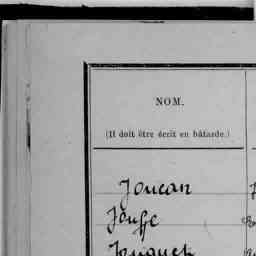 NOM.
(Il doit être écrit en bâtarde.)
Joucan
Jouffe
Jouquet